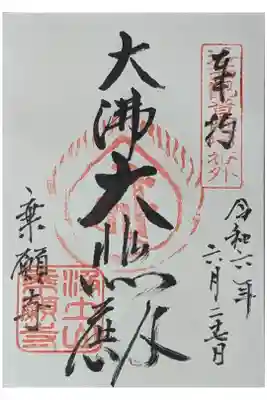 奉拝
大佛大悲殿
令和六年
六月二十七日
乗願寺